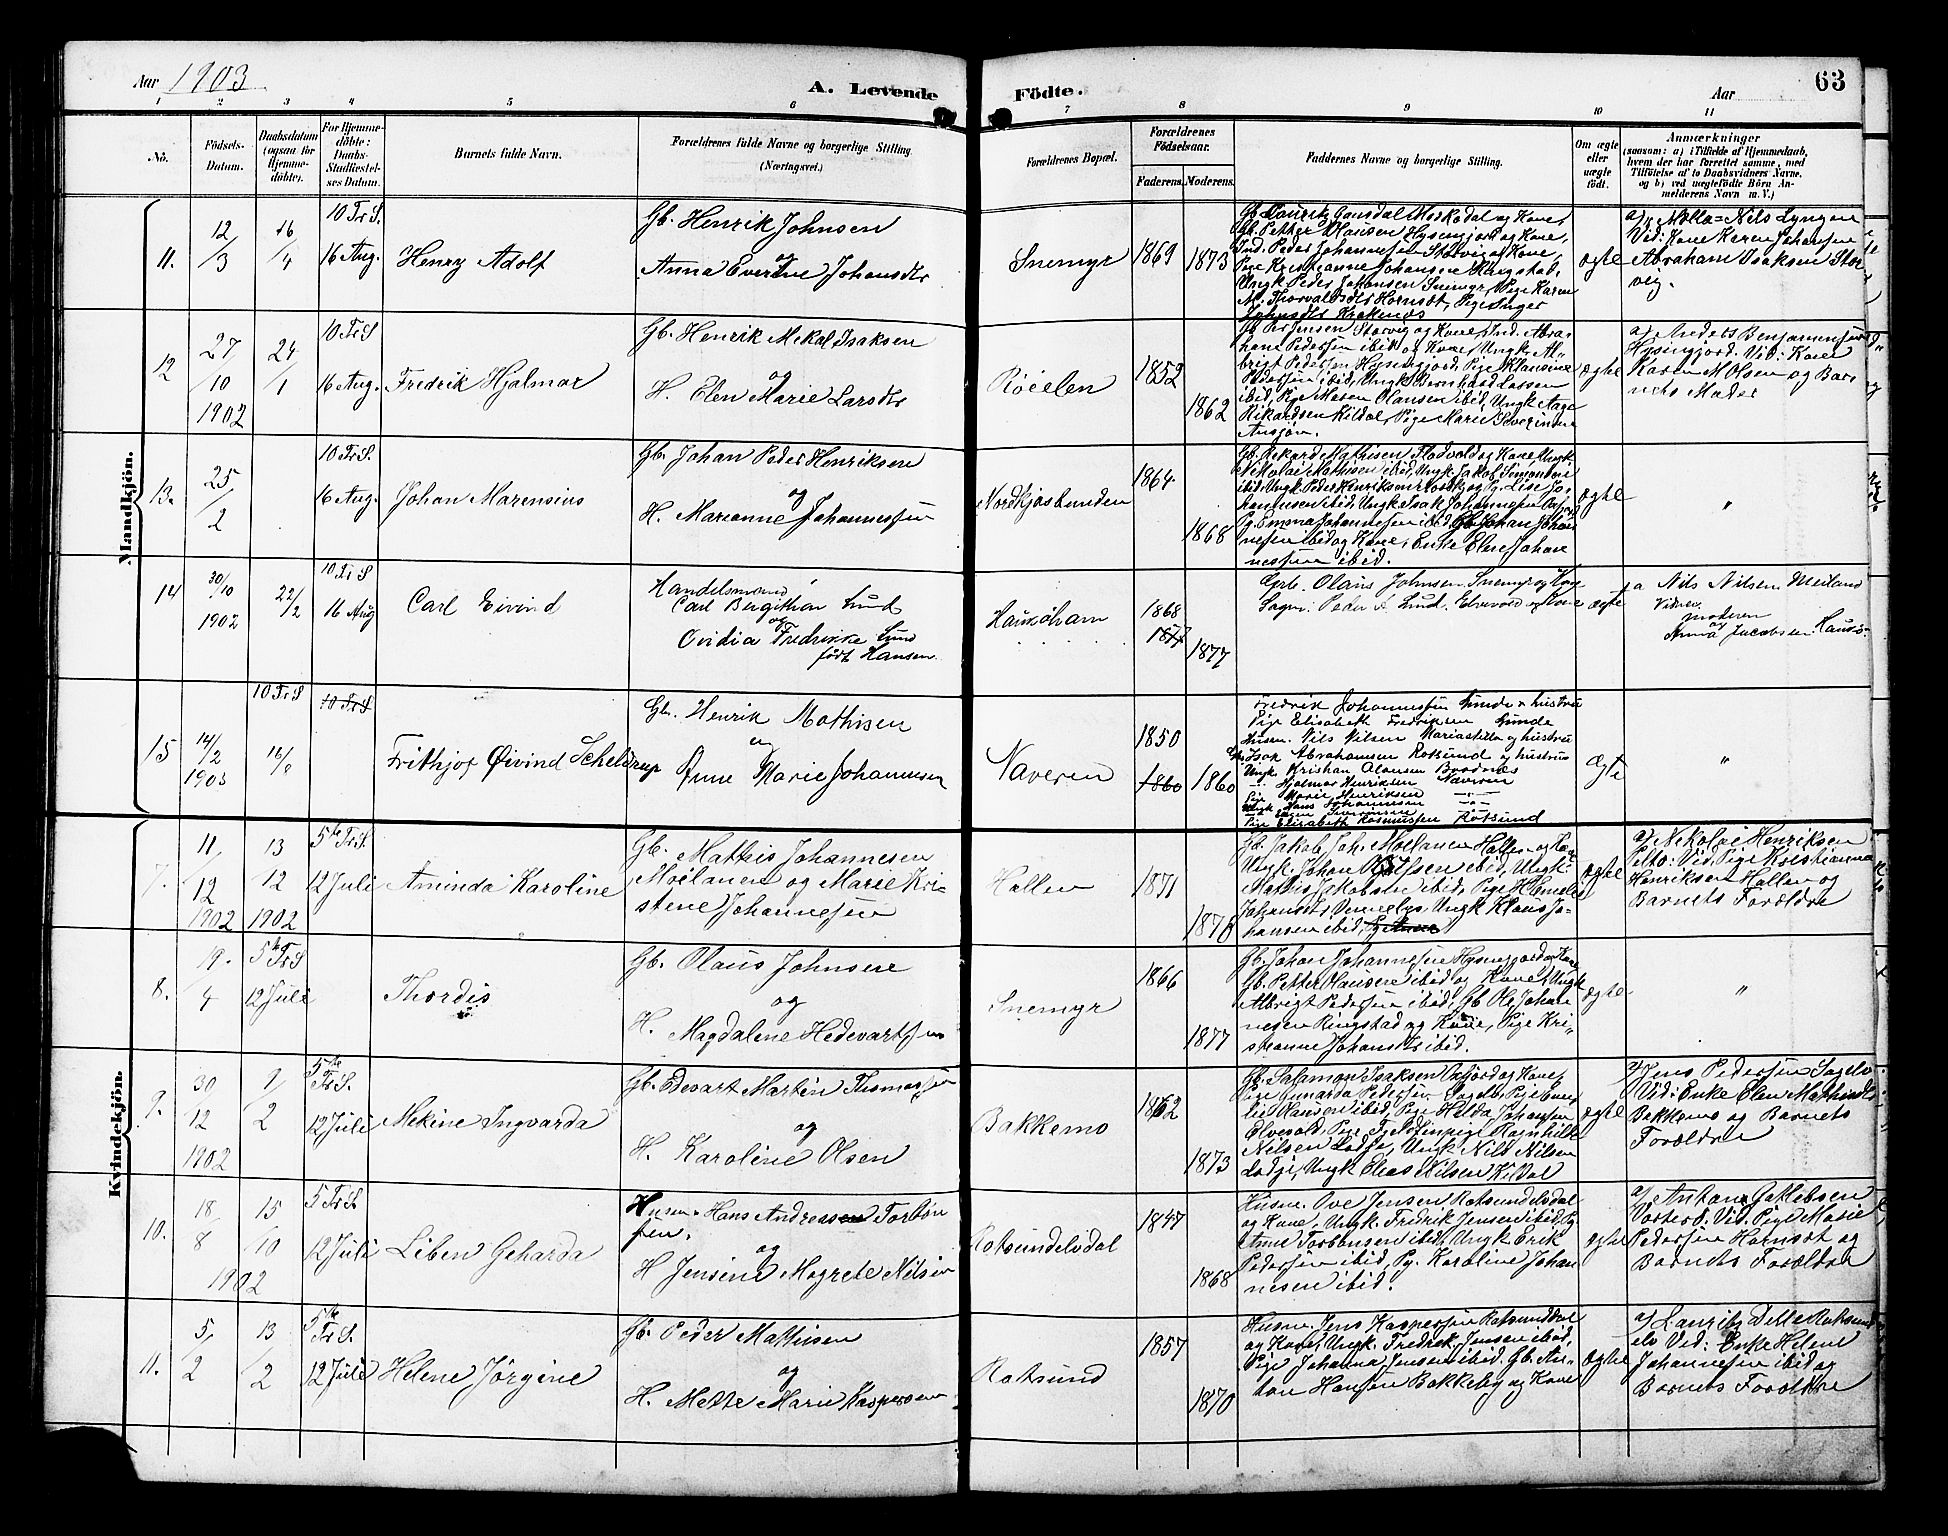 Aar 1903
A. Levende
Födte.
63
Aar
1 2 3 4 5 6 7 8 9 10 11
No.
Födsels-
Datum.
Daabsdatum
(ogsaa for
Hjemme-
döbte).
For Hjemme-
döbte:
Daabs-
Stadfæstel-
ses Datum.
Barnets fulde Navn.
Forældrenes fulde Navne og borgerlige Stilling.
(Næringsvei.)
Forældrenes Bopæl.
Forældrenes
Födselsaar.
Faderens. Moderens.
Faddernes Navne og borgerlige Stilling.
Om ægte
eller
uægte
födt.
Anmærkninger
(saasom: a) i Tilfælde af Hjemmedaab,
hvem der har forrettet samme, med
Tilföielse af to Daabsvidners Navne,
og b) ved uægtefödte Börn An-
melderens Navn m. V.)
Mandkjön.
11.
12/3
16/4
10 Tr. S.
16 Aug.
Henry Adolf
Gb. Henrik Johnsen
og
Anna Evertine Johansdtr
Snemyr
1869
1873
Gb. Lauritz Gansdal Moskodal og Kone,
Gb. Petter Hansen Hysingjord og Kone,
Ind. Peder Johannessen Storvig og Kone,
Pige Kristianne Johansen Ringstad,
Ungk Peder Johansen Snemyr, Pige Karen
M. Thorvaldsdtr Hamnæt, Pige Inger
Johnsdtr Krakenæs
ægte
a) Nils Lyngen
Vid: Kone Karen Johansen
Abraham Isaksen Stor
vig.
12
27/10
1902
24/1
10 Tr. S
16 Aug.
Fredrik Hjalmar
Gb. Henrik Mekal Isaksen
og
H. Elen Marie Larsdtr
Röielen
1852
1862
Gb Per Jensen Storvig og Kone, Ind. Abra-
ham Pedersen ibid og Kone, Ungk. Al-
brigt Pedersen Hysingjord, Pige Klausine
Pedersen ibid, Ungk Bernhard Lassen
ibid, Pige Maren Olausen ibid, Ungk Aage
Rikardsen Kildal, Pige Marie Severinsen
ægte
a) Anders Benjaminsen
Hysingjord. Vid: Kone
Karen M Olsen og Bar-
nets Moder
13.
25/2
10 Tr. S.
16 Aug.
Johan Marensius
Gb. Johan Peder Henriksen
og
H. Marianne Johannessen
Nordkjosbunden
1864.
1868
Gb. Rekard Mathisen Fladvold og Kone, Ungk
Nikolai Mathisen ibid, Ungk Jakob Simonsen
ibid, Ungk Peder Henriksen og Pg. Lise Jo-
hannesen ibid, Ungk Isak Johannesen
Pg. Emma Johannesen ibid, Gb Johan Johan
nesen ibid og Kone, Enke Elen Johan
nessen ibid.
ægte
"
14
30/10
1902
22/2
10 Tr S
16 Aug
Carl Eivind
Handelsmand
Carl Birgithon Lund
og
Ovidia Fredrikke Lund
födt Hansen
Hauköham
1868
1877
1877
Grb. Olaus Johnsen Snemyr og Kone
Sagn. Peder A Lund. Elvevold og Kone
ægte
a Nils Nilsen Meiland
Vidner
moderen
og
Anna Jacobsen. Haukö
15
14/2
1903
10 Tr. S
16/8
10 Tr S
Frithjof Öivind Scheldrup
Gb. Henrik Mathisen
og
Anne Marie Johannesen
Naveren
1850
1860
1860
Fredrik Johannessen Lunde & hustru
Pige Elisabeth Fredriksen Lunde
Husm. Nils Nilsen Mariastilla og hustru
Gb. Isak Abrahamsen Rotsund og hustru
Ungk. Kristian Olausen Bradnæs
" Hjalmar Henriksen Naveren
Pige Marie Henriksen
Ungk Hans Johannesen
Pige Elizabeth Rasmussen Rotsund
ægte
"
Kvindekjön.
7.
11/12
1902
13
12
1902
5te Tr. S.
12 Juli
Aminda Karoline
Gb. Mathis Johannesen
Moilanen og Marie Kri-
stene Johannesen
Hallen
1871
1878
Gb. Jakob Joh. Moilanen Hallen og Kone
Ungk. Johan Olsen ibid, Ungk.
Mathis Jakobsen ibid, Pige
Johansdtr Vennelys, Ungk Klaus Jo-
hansen ibid,
ægte
a) Nikolai Henriksen
Pelto: Vid. Pige Kristianna
Henriksen Hallen og
Barnets Forældre
8.
19.
4
5te Tr S
12 Juli
Thordis
Gb. Olaus Johnsen
og
H. Magdalene Hedevartsen
Snemyr
1866
1877
Gb. Johan Johannesen Hysingjord og Kone
Gb. Petter Hansen ibid og Kone, Ungk
Albrigt Pedersen ibid, Gb Ole Johan
nesen Ringstad og Kone, Pige Kri-
stianne Johansdtr ibid.
ægte
"
9.
30/12
1902
9/2
5te Tr. S.
12 Juli
Mekine Ingvarda
Gb. Edevart Martin Thomassen
og
H. Karoline Olsen
Bakkemo
1862
1873
Gb. Salamon Isaksen Oxfjord og Kone,
Pige Jenarda Pedersen Sagelv, Pige Emi-
lie Hansen ibid, Pige Hilda Johansen
Elvevold, Pige Fjeldfinpige Ragnhilde
Nilsen, Ungk Nils Nilsen
Ungk Elias Nilsen Kildal
ægte
a) Jens Pedersen Sagelv
Vid: Enke Elen Mathisdtr
Bakkemo og Barnets
Forældre
10.
18/8
1902
15/10
5 Tr. S.
12 Juli
Liben Geharda
Husm. Hans Andreas Torbön
sen.
og
H Jensine Magrete Nilsen
Rotsundelvdal
1847
1868
Husm. Ove Jensen Rotsundelvdal
og Kone, Ungk. Fredrik Jensen ibid, Pg.
Anne Torbönsen ibid, Ungk Erik
Pedersen ibid, Pg. Karoline Johan
nesen ibid.
ægte
a) Antan Gatlebsen
Vorterö. Vid. Pige Marie
Pedersen Hamnæt og
Barnets Forældre
11.
5/2
13/2
5te Tr. S.
12 Juli
Helene Jörgine
Gb. Peder Mathisen
og
H. Mette Marie Kaspersen
Rotsund
1857
1870
Husm. Jens Kaspersen Rotsunddal
og Kone, Ungk. Fredrik Jensen ibid,
Pige Johanna Jensen ibid. Gb. An-
ton Hansen Bakkeby og Kone
ægte
a) Laurits Dille Rotsund
elv Vid: Enke Helene
Johannesen ibid og
Barnets Forældre